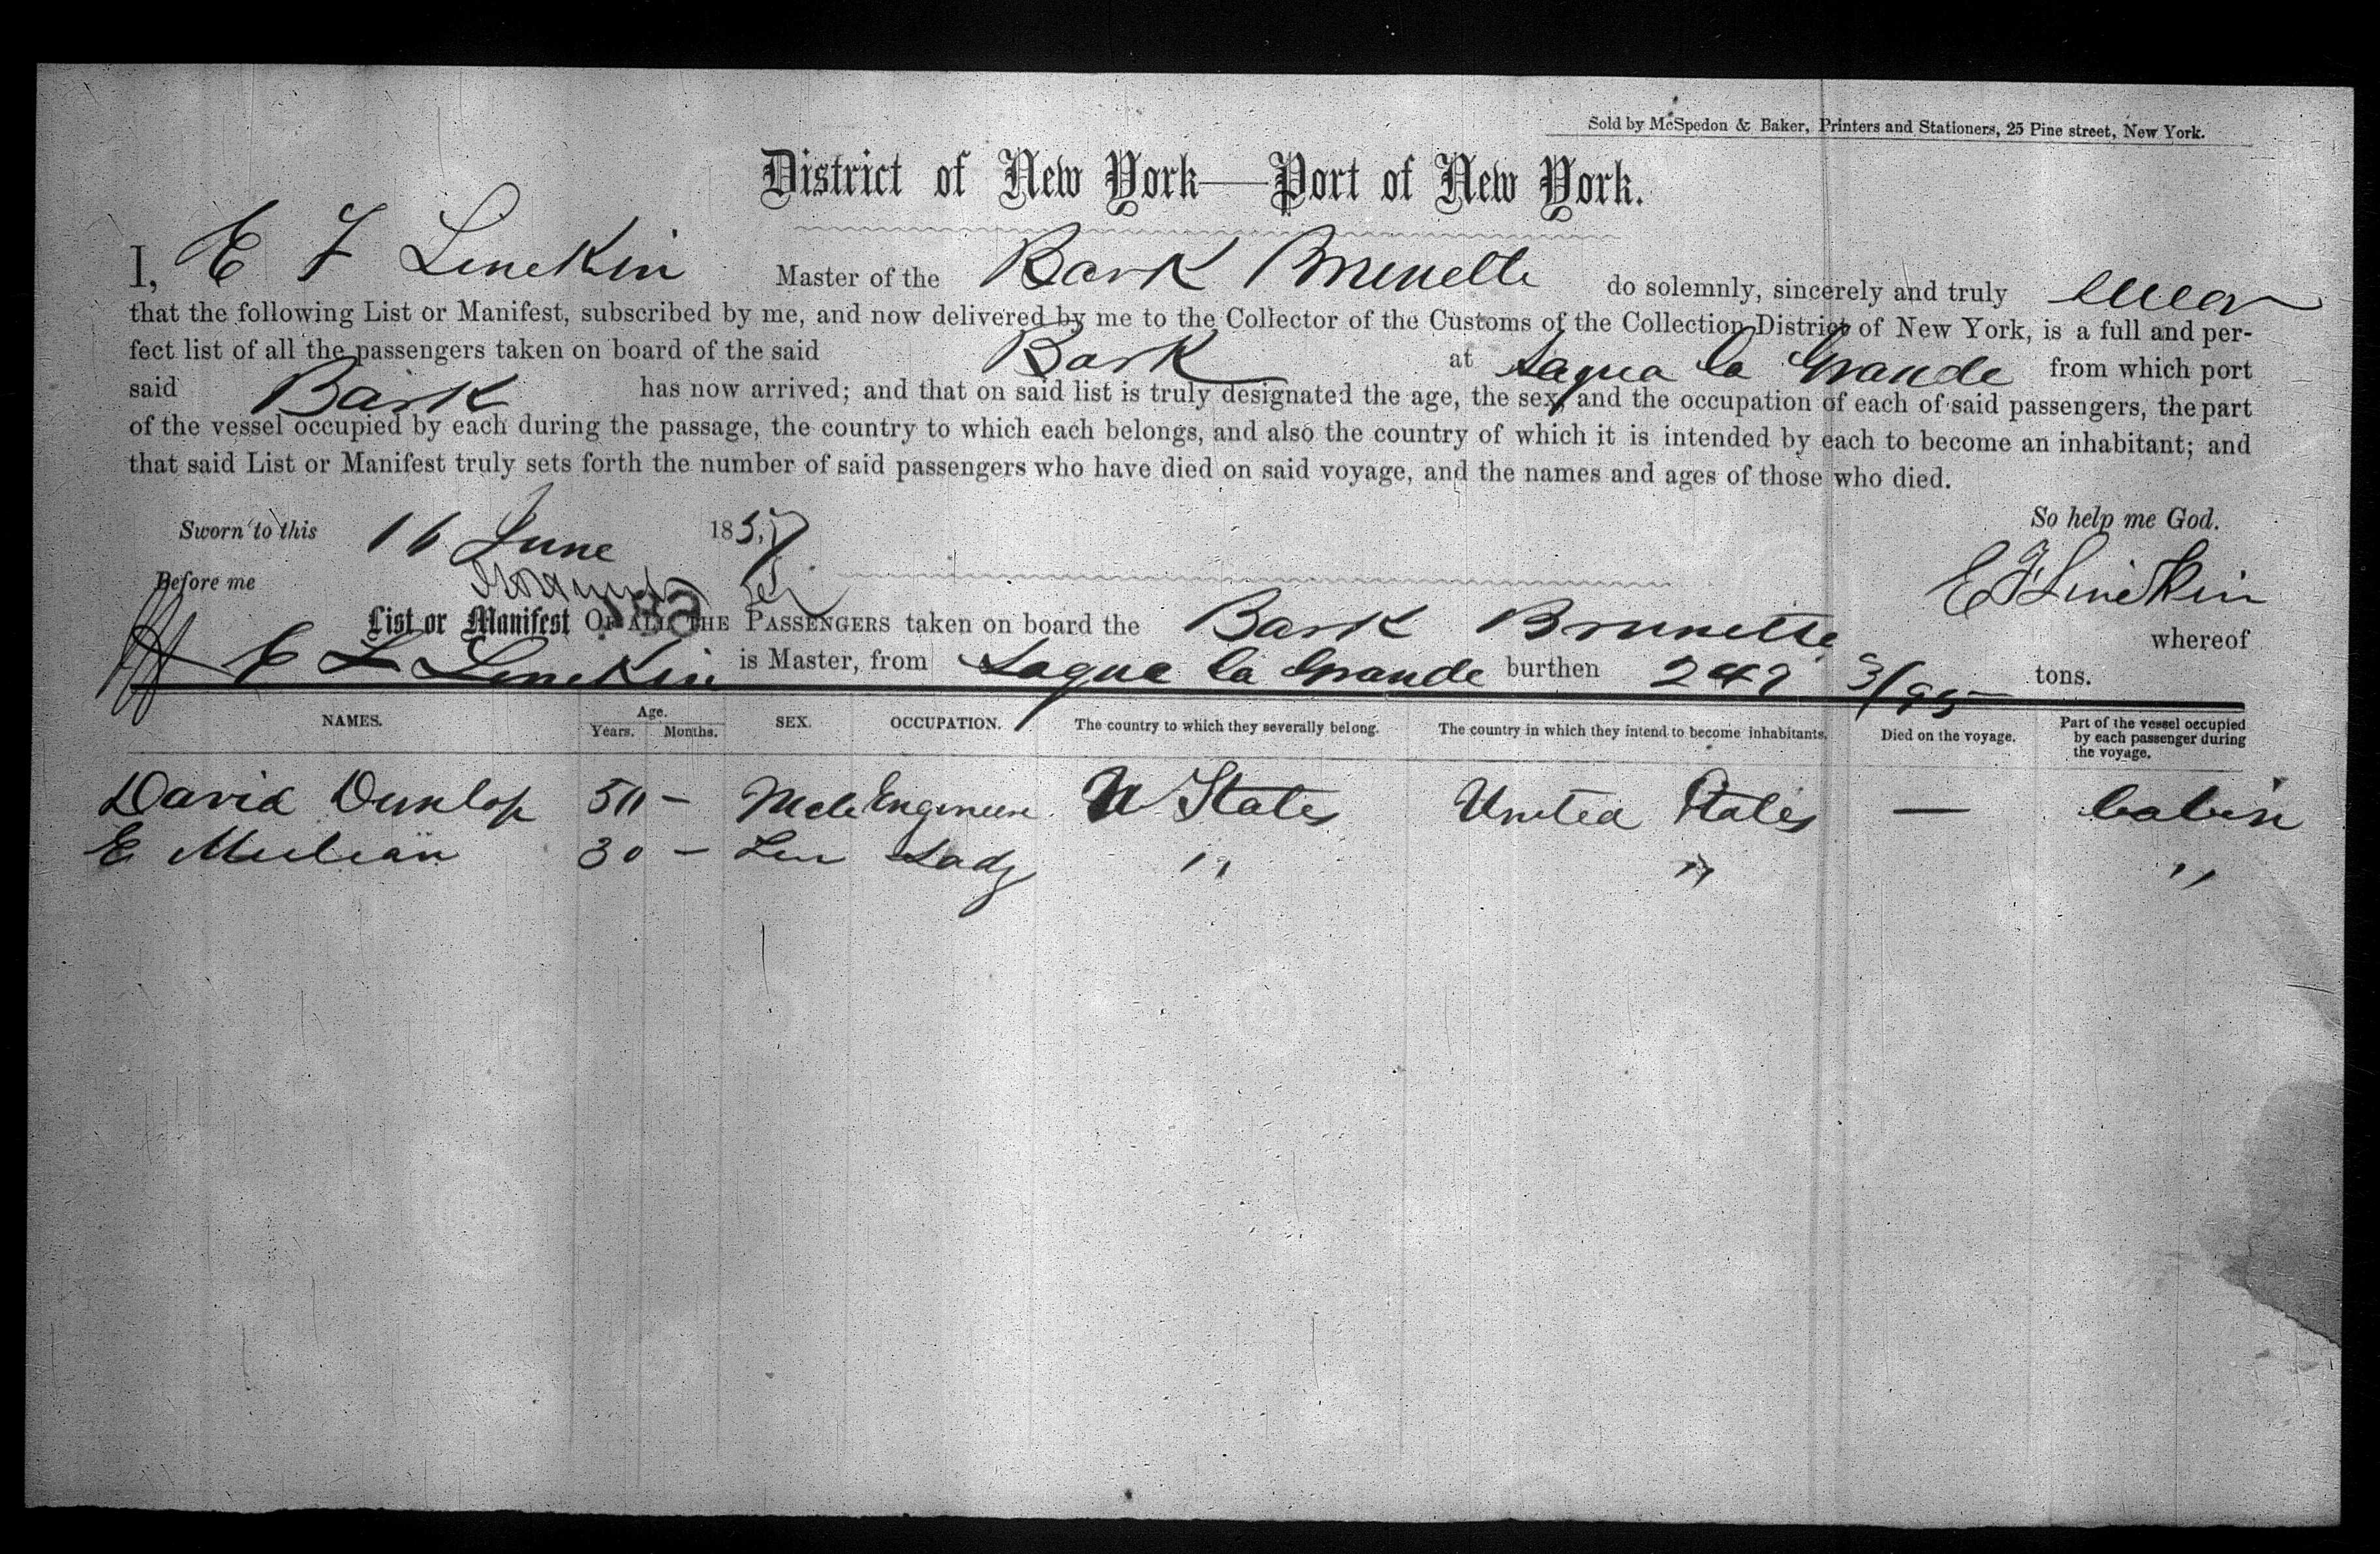 Sold by McSpedon & Baker, Printers and Stationers, 25 Pine street, New York.
District of New York—Port of New York.
I, E F Linekin Master of the Bark Brunette do solemnly, sincerely and truly swear
that the following List or Manifest, subscribed by me, and now delivered by me to the Collector of the Customs of the Collection District of New York, is a full and per-
fect list of all the passengers taken on board of the said Bark at Sagua la Grande from which port
said Bark has now arrived; and that on said list is truly designated the age, the sex, and the occupation of each of said passengers, the part
of the vessel occupied by each during the passage, the country to which each belongs, and also the country of which it is intended by each to become an inhabitant; and
that said List or Manifest truly sets forth the number of said passengers who have died on said voyage, and the names and ages of those who died.
Sworn to this 16 June 1857 So help me God.
Before me E F Linekin
List or Manifest OF ALL THE PASSENGERS taken on board the Bark Brunette whereof
E F Linekin is Master, from Sagua la Grande burthen 3/95 tons.
NAMES. Age. Years. Months. SEX. OCCUPATION. The country to which they severally belong. The country in which they intend to become inhabitants. Died on the voyage. Part of the vessel occupied by each passenger during the voyage.
David Dunlop 50 — Male Engineer U States United States — Cabin
E 30 — Lady " " "